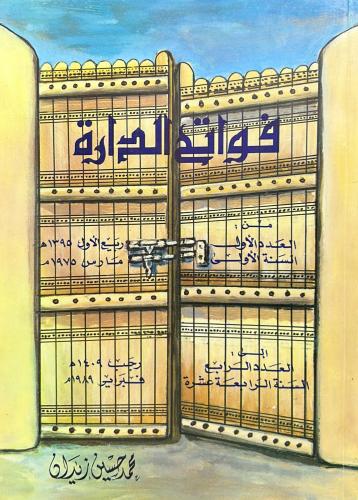 فواتح الدارة
من:
العدد الأولى ربيع الأول ١٣٩٥هـ
السنة الأولى مارس ١٩٧٥م
إلى:
العدد الرابع رجب ١٤٠٩هـ
السنة الرابعة عشرة فبراير ١٩٨٩م
محمد حسين زيدان